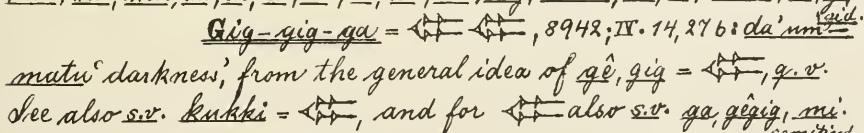 Gig-gig-ga = 𒈪 𒈪, 8942; IV. 14, 27 b: da'um-
matu 'darkness', from the general idea of gê, gig = 𒈪, q. v.
See also s.v. kukki = 𒈪, and for 𒈪 also s.v. ga, gêgig, mi.